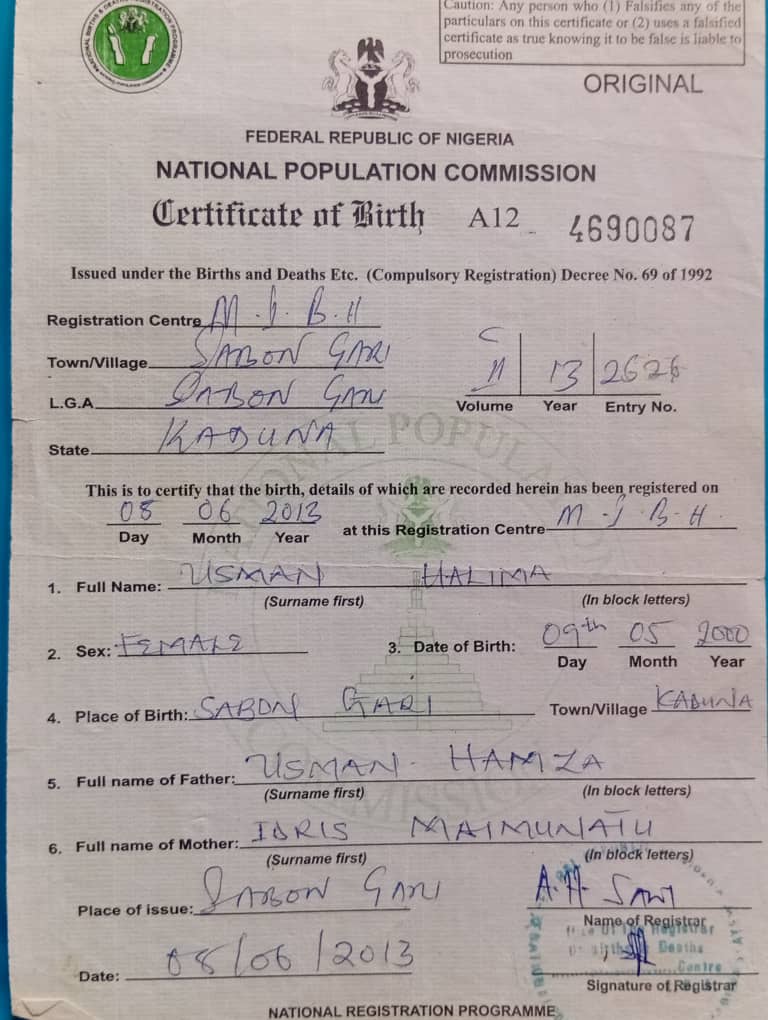 Caution: Any person who (1) Falsifies any of the
particulars on this certificate or (2) uses a falsified
certificate as true knowing it to be false is liable to
prosecution
ORIGINAL
FEDERAL REPUBLIC OF NIGERIA
NATIONAL POPULATION COMMISSION
Certificate of Birth A12 4690087
Issued under the Births and Deaths Etc. (Compulsory Registration) Decree No. 69 of 1992
Registration Centre M.J.B.H
Town/Village SABON GARI
L.G.A SABON GARI
11 13 2626
Volume Year Entry No.
State KADUNA
This is to certify that the birth, details of which are recorded herein has been registered on
08 06 2013 at this Registration Centre M.J.B.H
Day Month Year
1. Full Name: USMAN HALIMA
(Surname first) (In block letters)
2. Sex: FEMALE 3. Date of Birth: 09th 05 2000
Day Month Year
4. Place of Birth: SABON GARI Town/Village KADUNA
5. Full name of Father: USMAN HAMZA
(Surname first) (In block letters)
6. Full name of Mother: IDRIS MAIMUNATU
(Surname first) (In block letters)
Place of issue: SABON GARI A.H. SANI
Name of Registrar
Date: 08/06/2013
Signature of Registrar
NATIONAL REGISTRATION PROGRAMME